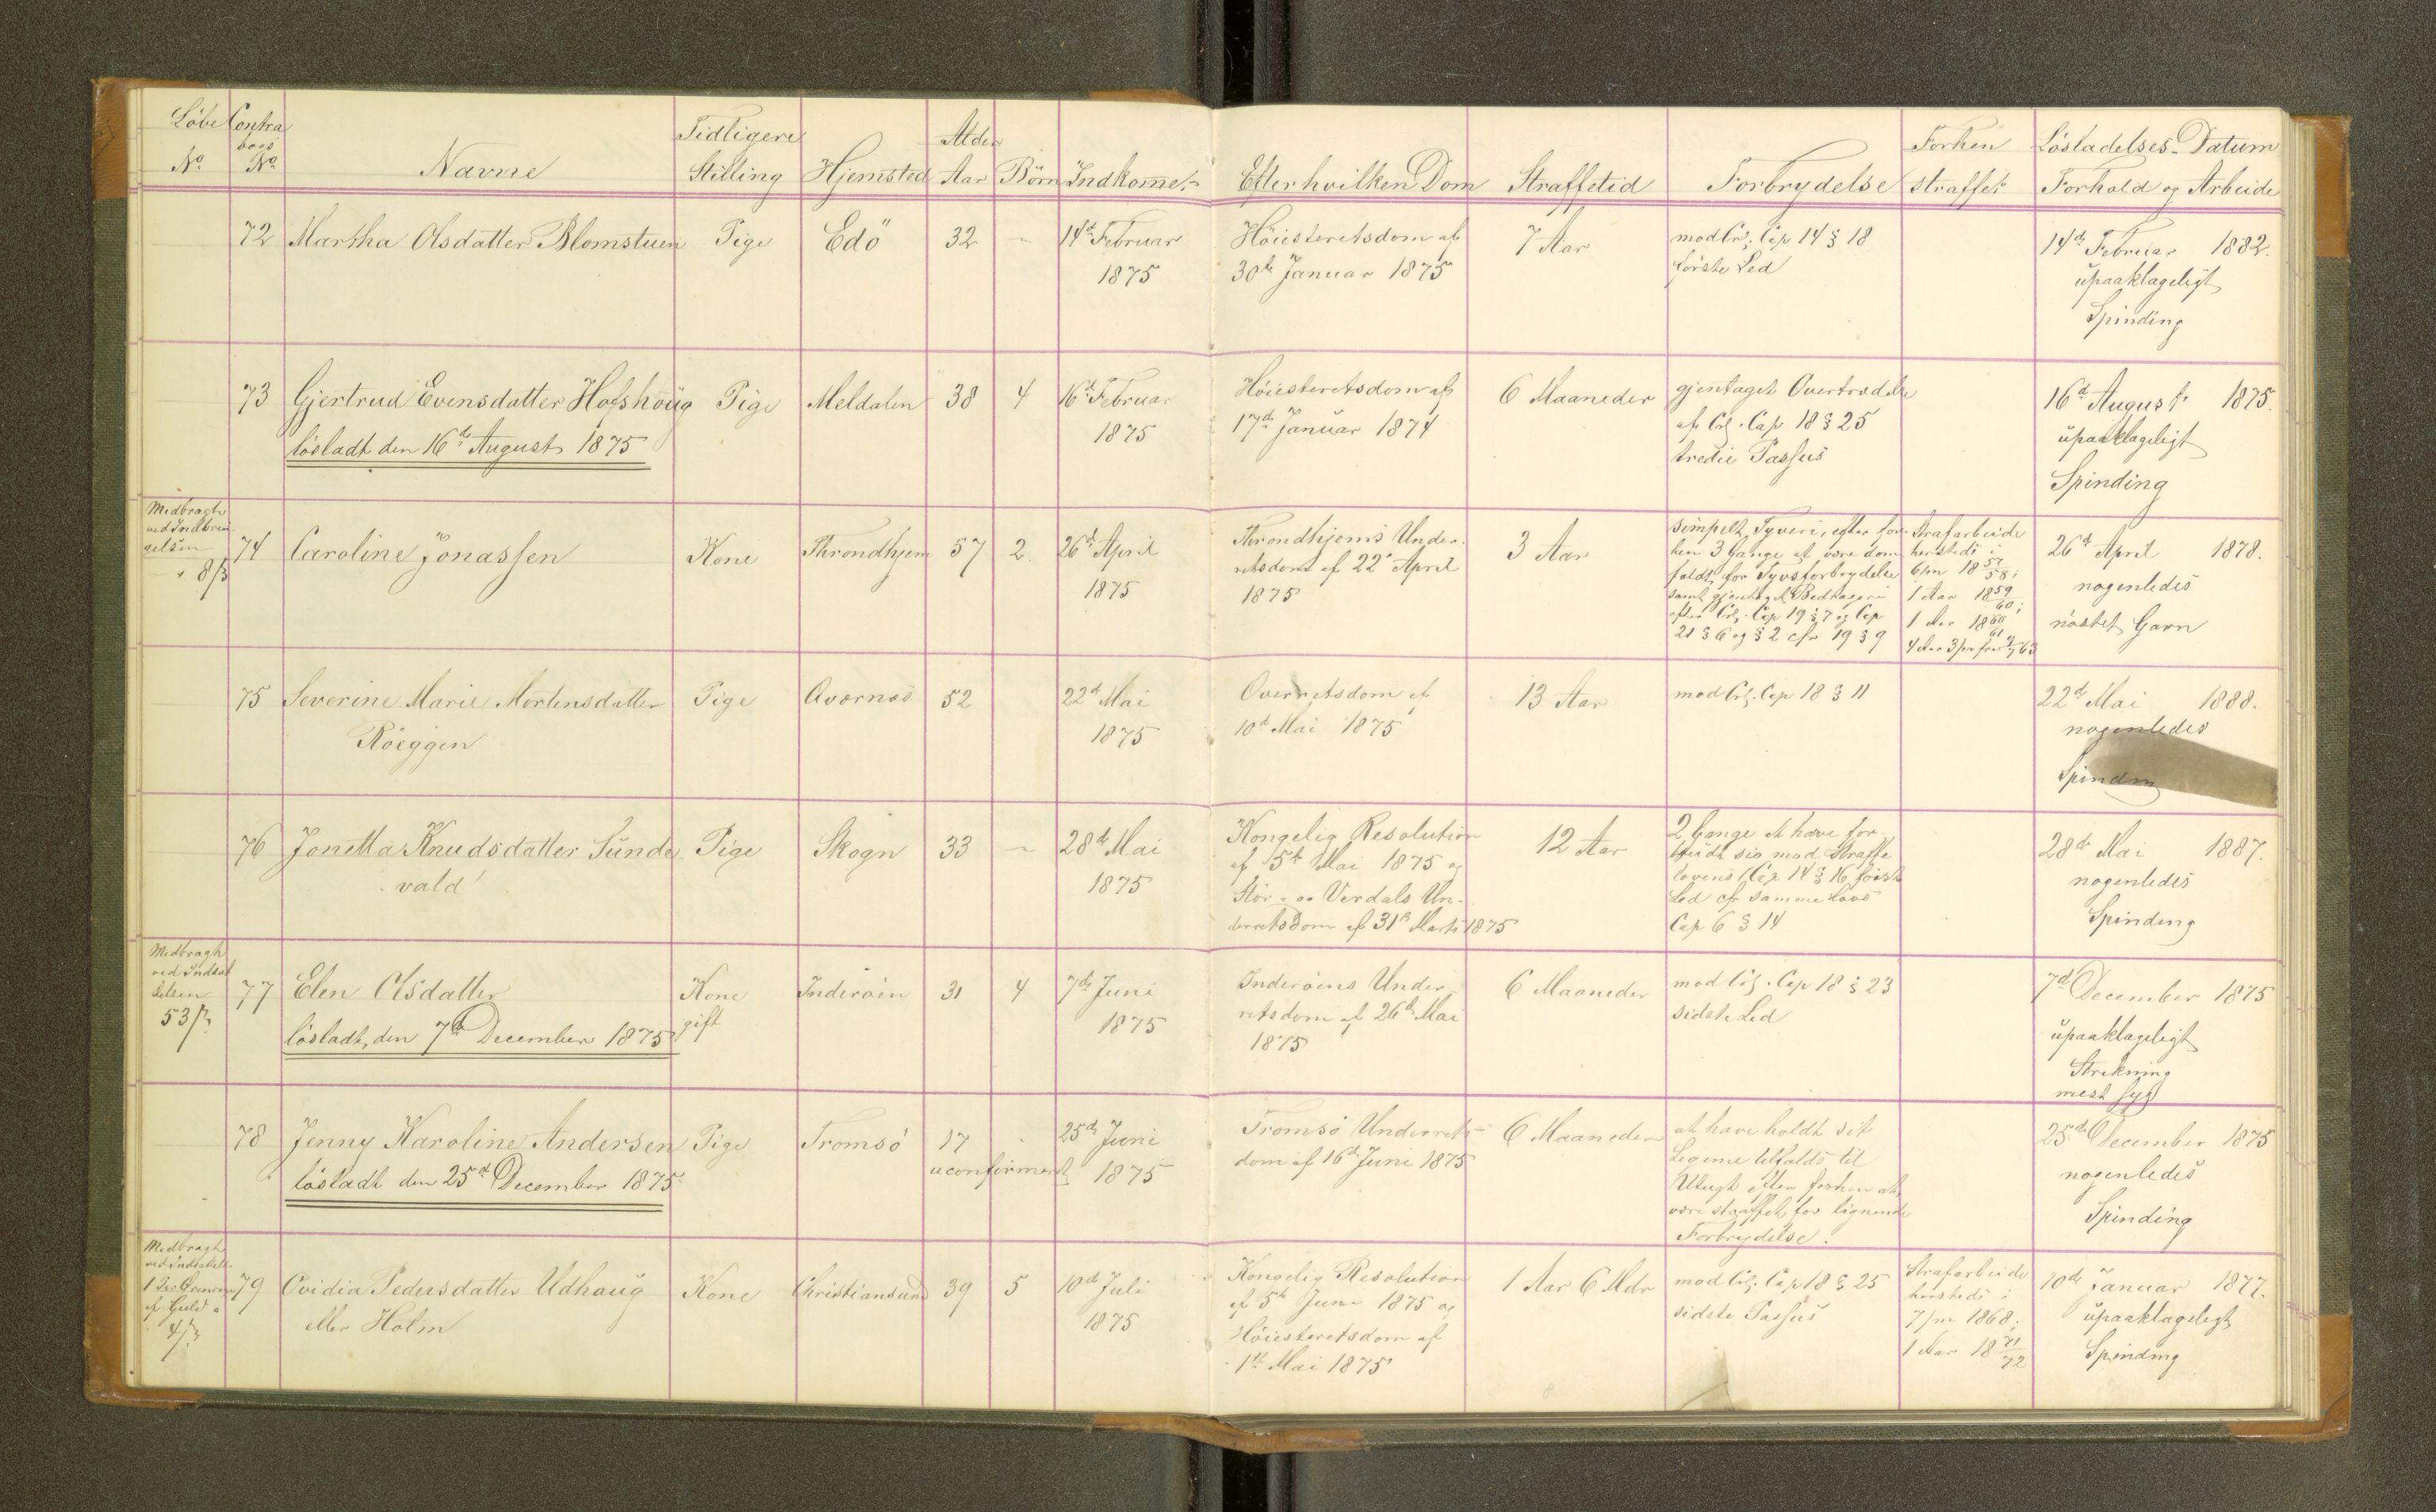 Löbe Contra Tidligere Alder Forhen Löslatelses-Datum
No. bogs No. Navne Stilling Hjemsted Aar Börn Indkomme. Efter hvilken Dom Straffetid Forbrydelse straffet Forhold og Arbeide
72 Martha Olsdatter Blomstuen Pige Edö 32 - 14de Februar 1875
Höiesteretsdom af
30te Januar 1875
7 Aar
mod Crl. Cap 14 § 18
förste Led
14de Februar 1882.
upaaklageligt
Spinding
73 Gjertrud Evensdatter Hofshoug Pige Meldalen 38 4 16de Februar 1875
lösladt den 16de August 1875
Höiesteretsdom af
17de Januar 1874
6 Maaneder
gjentaget Overtrædelse
af Crl. Cap 18 § 25
tredie Passus
16de August 1875.
upaaklageligt
Spinding
Medbragt
ved Indbrin-
gelsen
8 ß
74 Caroline Jonassen Kone Throndhjem 57 2 26de April 1875
Throndhjems Under-
retsdom af 22de April
1875
3 Aar
simpelt Tyveri, efter for-
hen 3 Gange at være dom-
fældt for Tyvsforbrydelse
samt gjentaget Bedrageri
efter Crl. Cap 19 § 7 og Cap
21 § 6 og § 2 cfr 19 § 9
Strafarbeide
hersteds i
6/m 18 57/58;
1 Aar 18 59/60;
1 Aar 18 60/61
4 Aar 3/m fra 63
26de April 1878.
nogenledes
nöstet Garn
75 Severine Marie Mortensdatter Pige Qværnes 52 22de Mai 1875
Röeggen
Overretsdom af
10de Mai 1875
13 Aar
mod Crl. Cap 18 § 11
22de Mai 1888.
nogenledes
Spinding
76 Jonetta Knudsdatter Sunde Pige Skogn 33 - 28de Mai 1875
vald
Kongelig Resolution
af 5te Mai 1875 og
Stör- og Verdals Un-
derretsdom af 31te Marts 1875
12 Aar
2 Gange at have for-
brudt sig mod Straffe
lovens Cap 14 § 16 förste
Led cfr samme Lovs
Cap 6 § 14
28de Mai 1887.
nogenledes
Spinding
Medbragt
ved Indsæt
telsen
53 ß
77 Elen Olsdatter Kone Inderöen 31 4 7de Juni 1875
gift
lösladt, den 7de December 1875
Inderöens Under
retsdom af 26de Mai
1875
6 Maaneder
mod Crl. Cap 18 § 23
sidste Led
7de December 1875
upaaklageligt
Strikning
mest syg
78 Jenny Karoline Andersen Pige Tromsö 17 25de Juni 1875
uconfirmeret
lösladt den 25de December 1875
Tromsö Underrets-
dom af 16de Juni 1875
6 Maaneder
at have holdt sit
Legeme tilfalds til
Utugt efter forhen at
være straffet for lignende
Forbrydelse.
25de December 1875
nogenledes
Spinding
Medbragt
ved Indsættel.
af Guld
4 ß
79 Ovidia Pedersdatter Udhaug Kone Christiansund 39 5 10de Juli 1875
eller Holm
Kongelig Resolution
af 5te Juni 1875 og
Höiesteretsdom af
1ste Mai 1875
1 Aar 6 Mdr
mod Crl. Cap 18 § 25
sidste Passus
Strafarbeide
hersteds i
7/m 1868;
1 Aar 18 71/72
10de Januar 1877.
upaaklageligt
Spinding